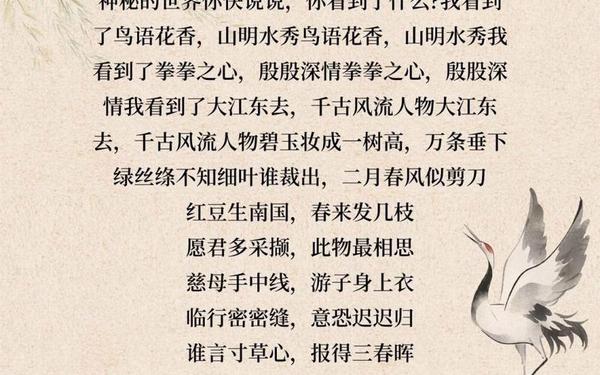 神秘的世界你快说说，你看到了什么?我看到
了鸟语花香，山明水秀鸟语花香，山明水秀我
看到了拳拳之心，殷殷深情拳拳之心，殷殷深
情我看到了大江东去，千古风流人物大江东
去，千古风流人物碧玉妆成一树高，万条垂下
绿丝绦不知细叶谁裁出，二月春风似剪刀
红豆生南国，春来发几枝
愿君多采撷，此物最相思
慈母手中线，游子身上衣
临行密密缝，意恐迟迟归
谁言寸草心，报得三春晖